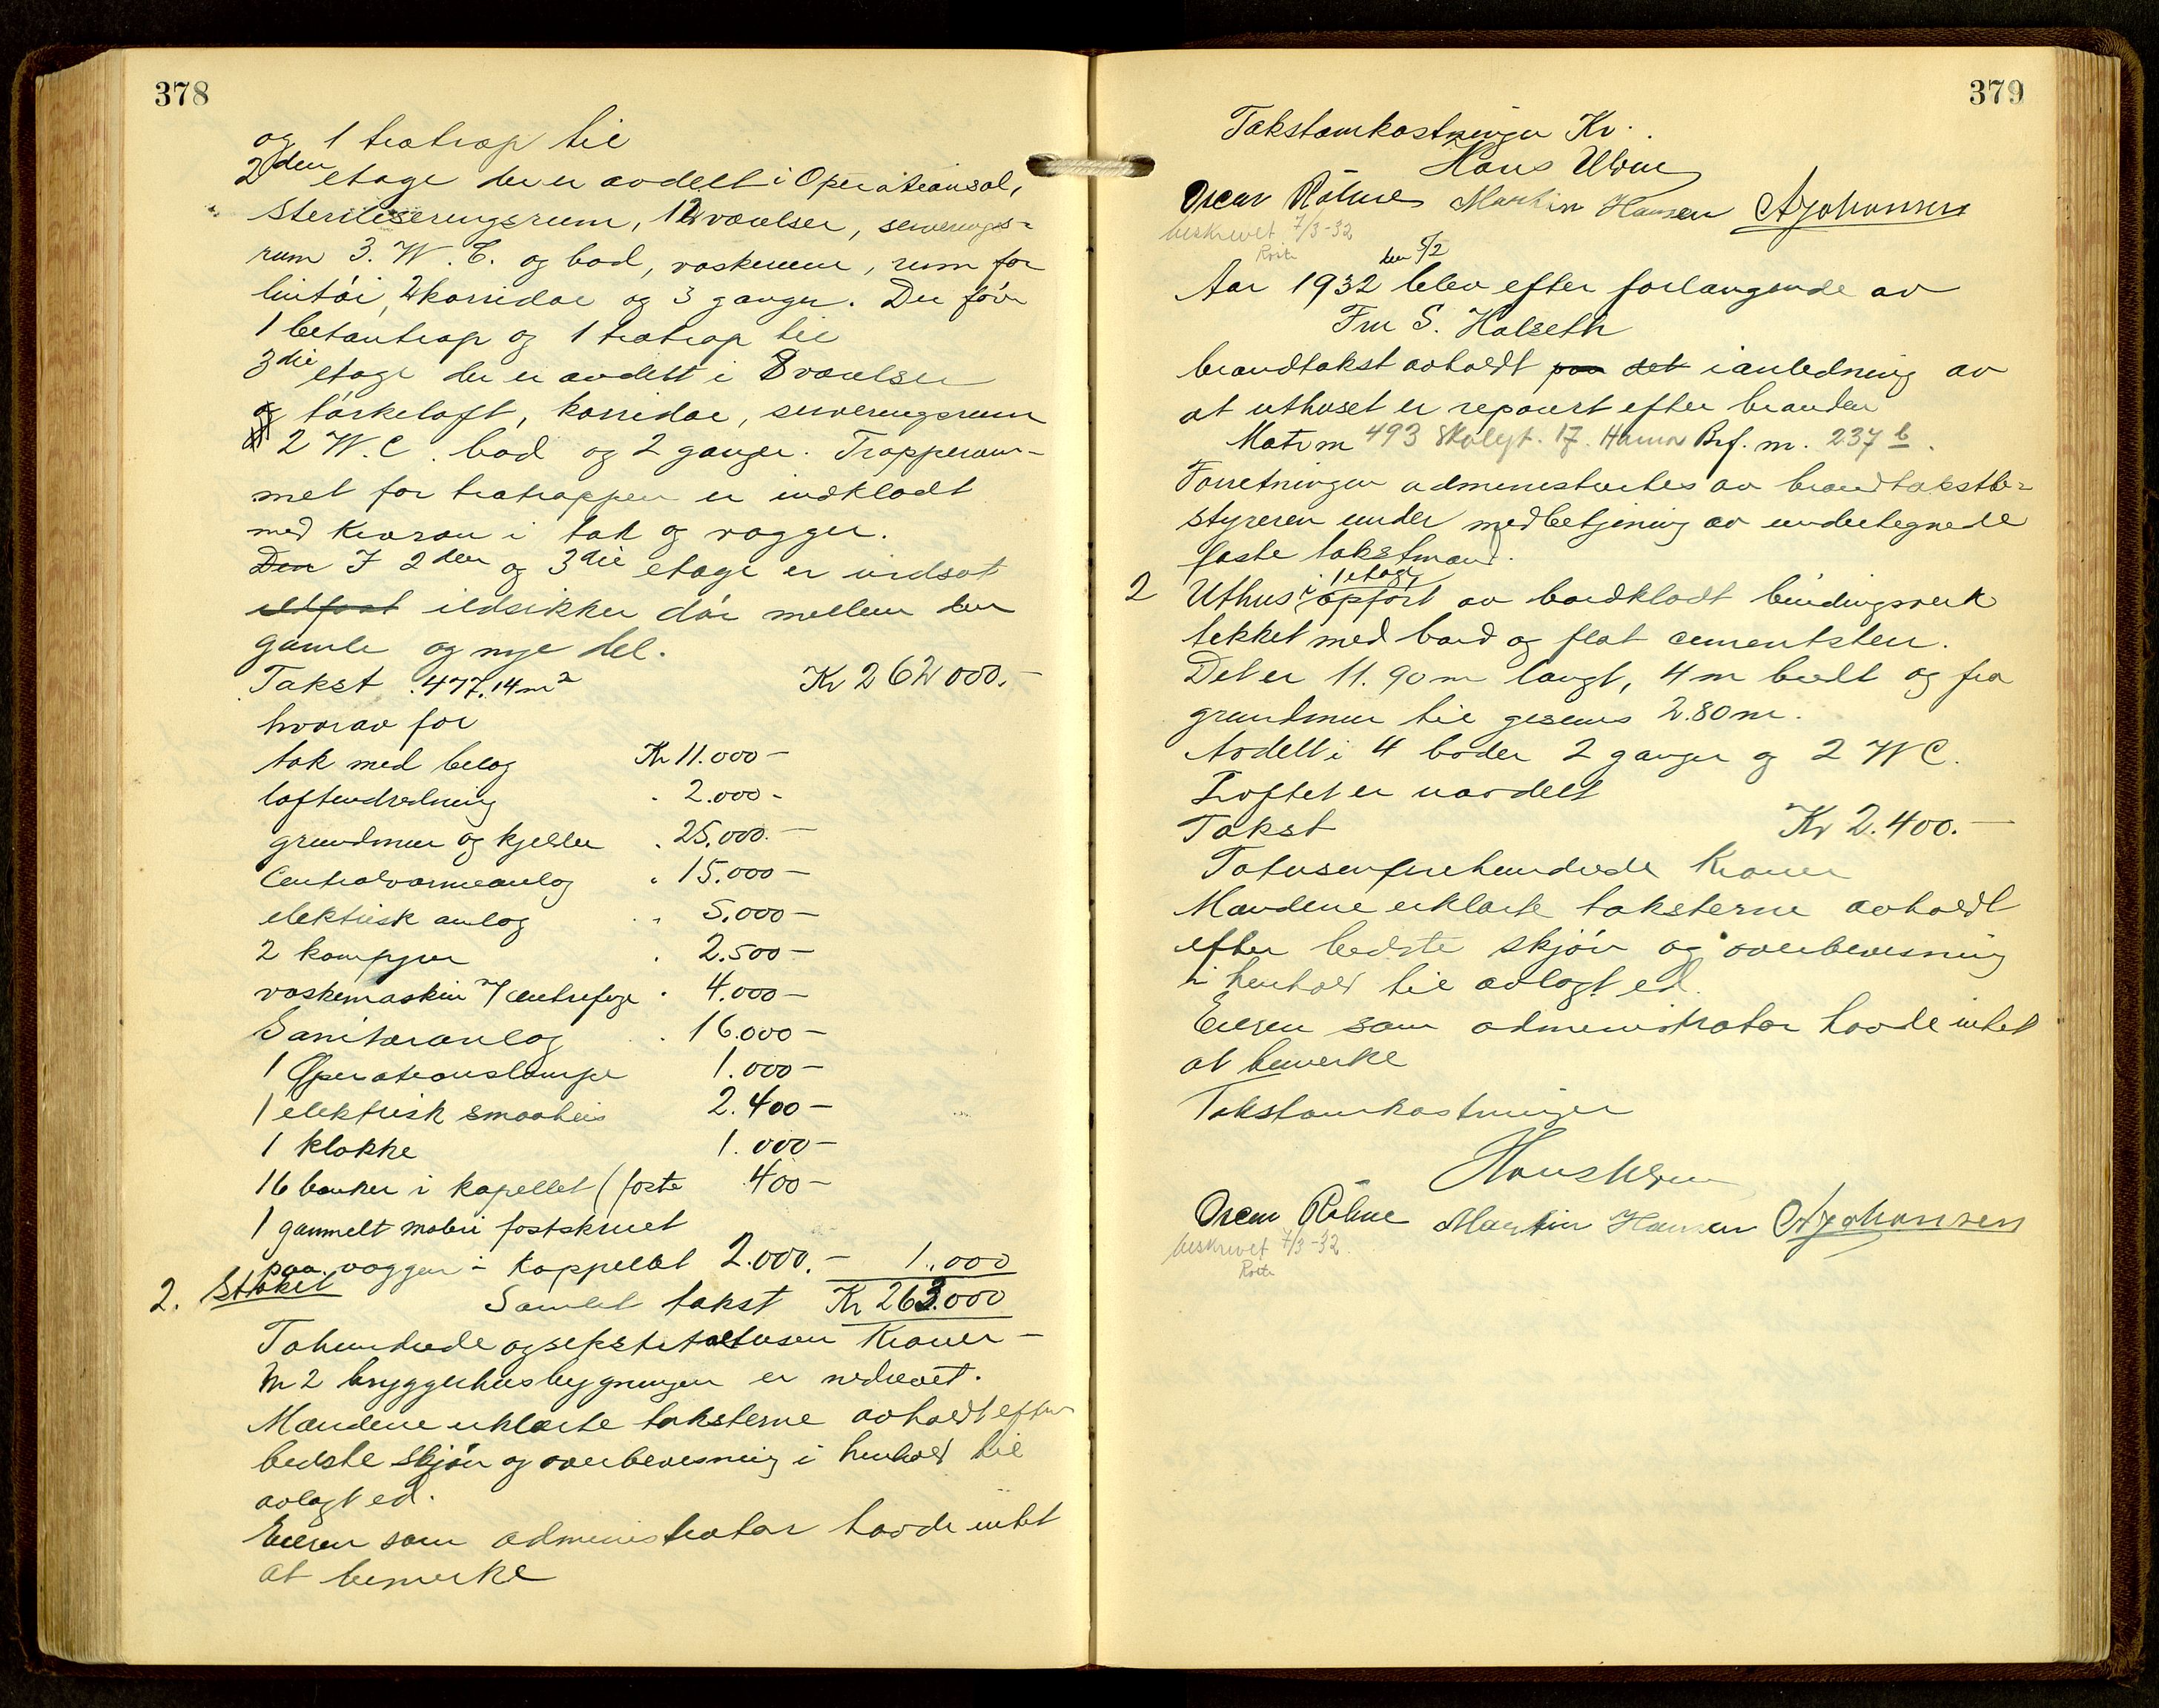 378
og 1 trætrap til
2den etage der er avdelt i Operationsal,
Steriliseringsrum, 12 værelser, serverings-
rum 3. W.C. og bad, vaskerum, rum for
lintöi, 2 korridor og 3 ganger. Der förer
1 betontrap og 1 trætrap til
3die etage der er avdelt i 8 værelser
og törkeloft, korridor, serveringsrum
2 W.C. bad og 2 ganger. Trapperum-
met for trætrappen er indklædt
med Krason i tak og vægger.
Den I 2den og 3die etage er indsat
ildfast ildsikker dör mellem den
gamle og nye del.
Takst 477.14 m² Kr 262 000.-
hvorav for
tak med belæg Kr 11.000-
loftindredning " 2.000-
grundmur og kjeller " 25.000.-
Centralvarmeanlæg " 15.000-
elektrisk anlæg " 5.000-
2 komfyrer " 2.500-
vaskemaskin m/ centrifuge " 4.000-
Sanitæranlæg " 16.000-
1 Operationslampe 1.000-
1 elektrisk smaaheis 2.400-
1 klokke 1.000-
16 bænker i kapellet (faste 400-
1 gammelt maleri fastskruet
paa væggen i kappellet 2.000.-
2. Stakit 1.000
Samlet takst Kr 263.000
Tohundrede og sekstitretusen Kroner-
Nr 2 bryggerhusbygningen er nedrevet.
Mændene erklærte taksterne avholdt efter
bedste skjön og overbevisning i henhold til
avlagt ed.
Eieren som administrator havde intet
at bemerke
379
Takstomkostninger Kr.
Hans Ulven
Oscar Röhne Martin Hansen A Johansen
beskrevet 7/3-32
den 5/2
Aar 1932 blev efter forlangende av
Fru S. Halseth
brandtakst avholdt paa det i anledning av
at uthuset er reparert efter branden
Matr nr 493 Skolegt. 17. Hamar Brf. nr. 237 b.
Forretningen administrertes av brandtakstbe-
styreren under medbetjening av undertegnede
faste takstmænd.
1 etage,
2 Uthus i opfört av bordklædt bindingsverk
tekket med bord og flat cementsten.
Det er 11.90 m langt, 4 m bredt og fra
grundmur til gesims 2.80 m.
Avdelt i 4 boder 2 ganger og 2 W C.
Loftet er uavdelt
Takst Kr 2.400.-
Totusenfirehundrede Kroner
Mændene erklærte taksterne avholdt
efter bedste skjön og overbevisning
i henhold til avlagt ed.
Eieren som administrator havde intet
at bemerke
Takstomkostninger
Hans Ulven
Oscar Röhne Martin Hansen A Johansen
beskrevet 7/3-32.